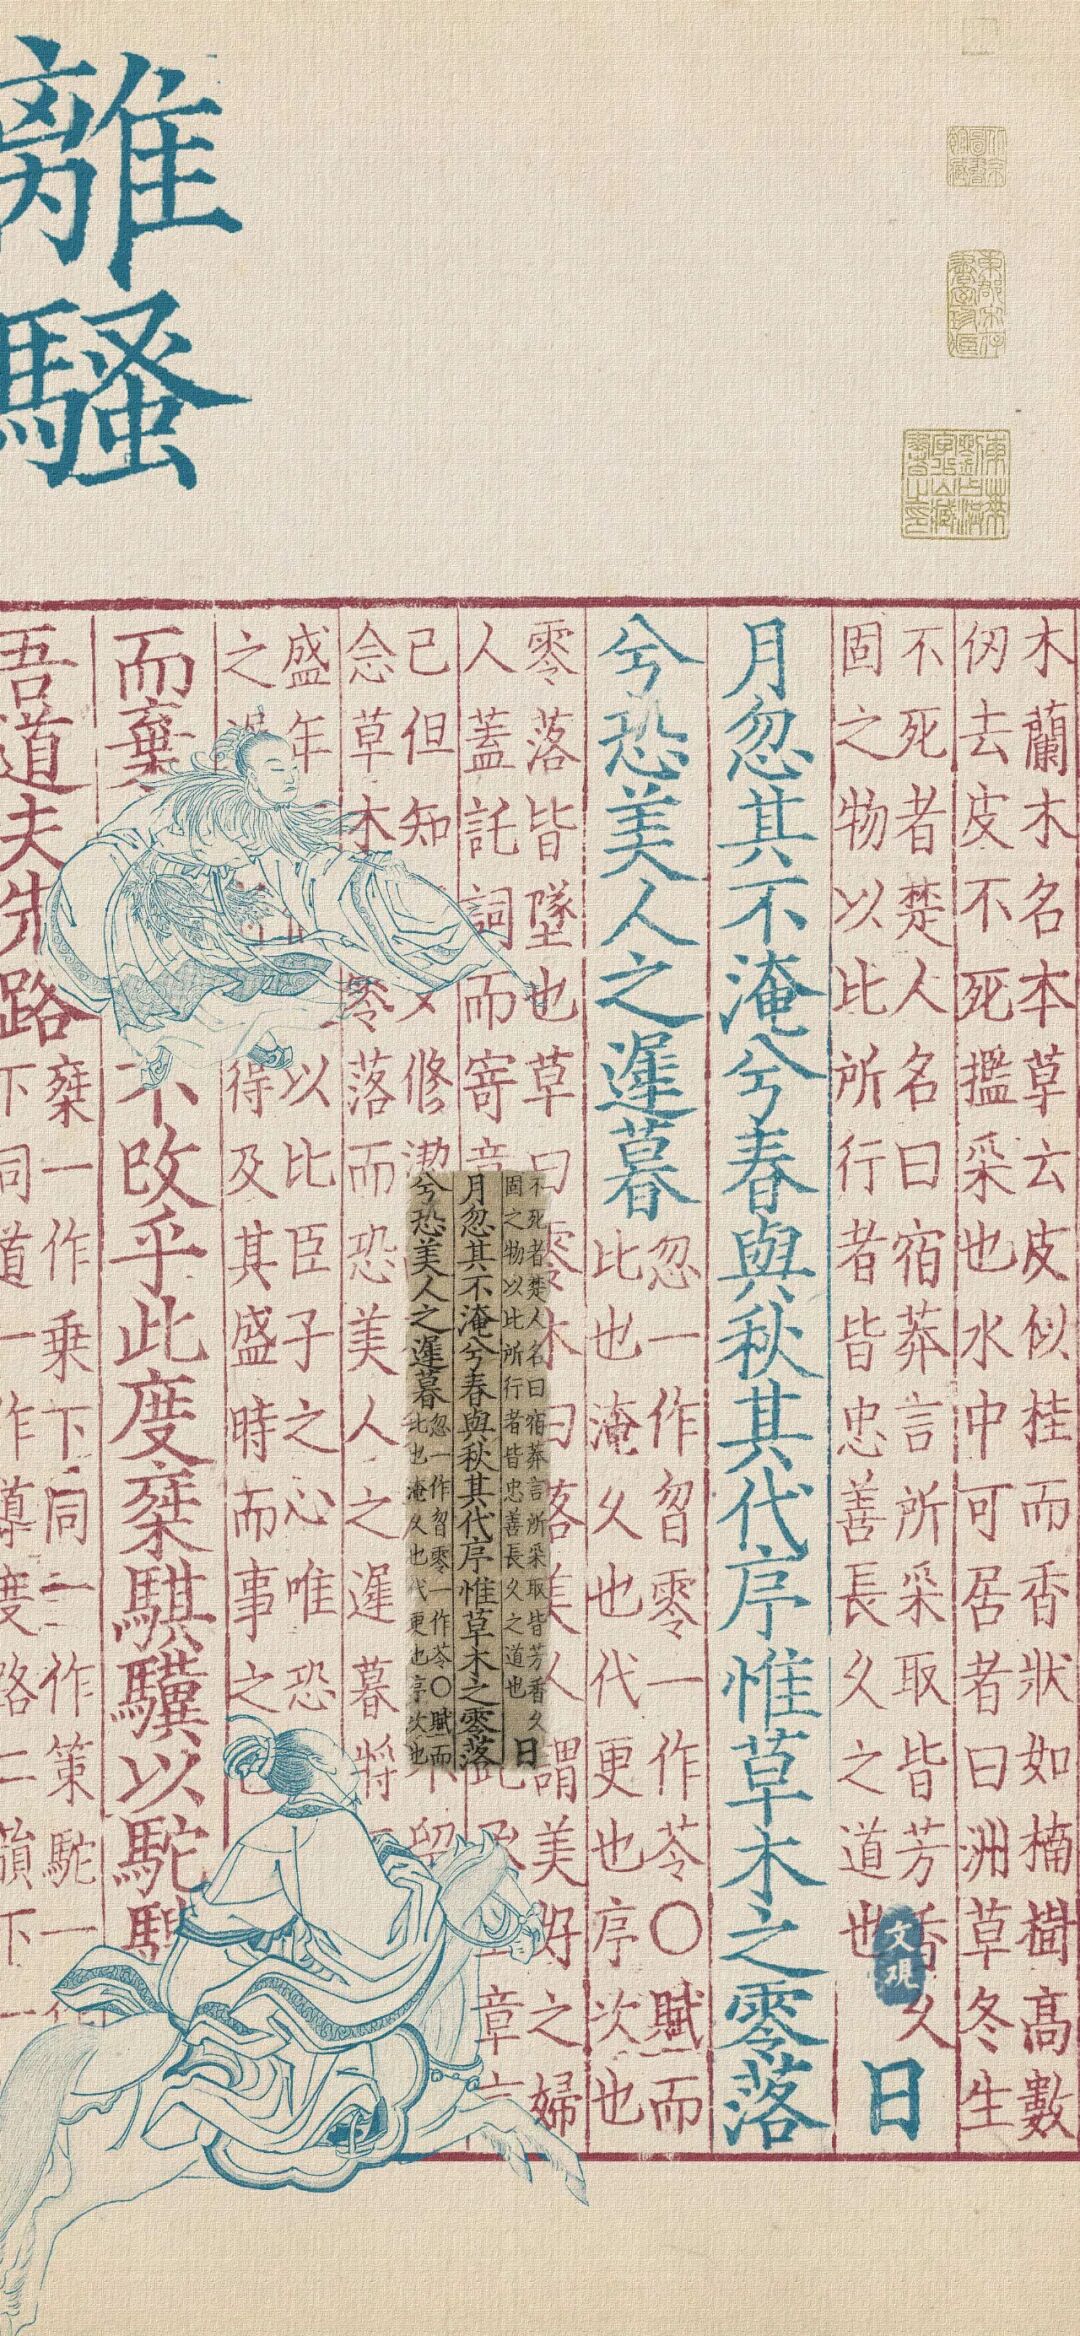 離騷
木蘭木名本草云皮似桂而香狀如楠樹髙數
仞去皮不死擥采也水中可居者曰洲草冬生
不死者楚人名曰宿莽言所采取皆芳香久
固之物以比所行者皆忠善長久之道也
日
月忽其不淹兮春與秋其代序惟草木之零落
兮恐美人之遲暮
忽一作曶零一作苓〇賦而
比也淹久也代更也序次也
零落皆墜也草曰零木曰落美人謂美好之婦
人蓋託詞而寄意
此章
已但知
修潔
念草木
零落而恐美人之遲暮將
盛年
以比臣子之心唯恐
之
得及其盛時而事之也
而棄
不改乎此度椉騏驥以駝騁
吾道夫先路
椉一作乗下同一作策駝一
下同道一作導度
路一
下一
文观
不死者楚人名曰宿莽言所采取皆芳香久
固之物以比所行者皆忠善長久之道也
日
月忽其不淹兮春與秋其代序惟草木之零落
兮恐美人之遲暮
忽一作曶零一作苓〇賦而
比也淹久也代更也序次也